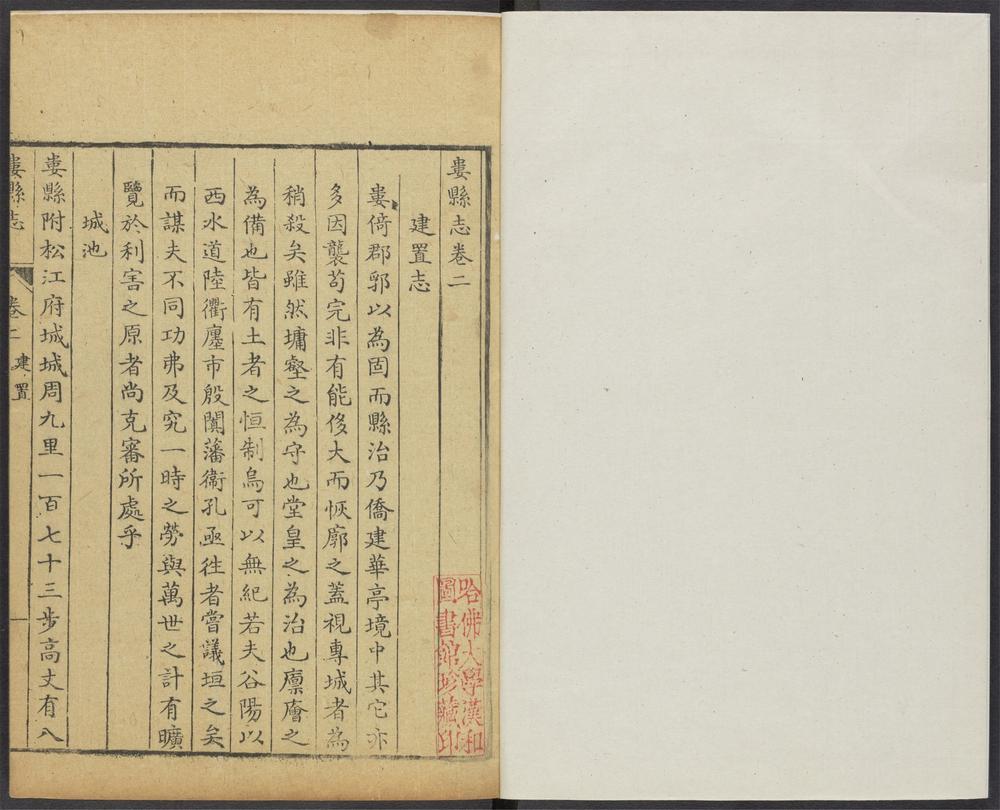 婁縣志卷二
建置志
婁倚郡郛以為固而縣治乃僑建華亭境中其它亦
多因襲苟完非有能侈大而恢廓之蓋視專城者為
稍殺矣雖然墉壑之為守也堂皇之為治也廪廥之
為備也皆有土者之恒制烏可以無紀若夫谷陽以
西水道陸衢廛市殷闐藩衞孔亟徃者嘗議垣之矣
而謀夫不同功弗及究一時之勞與萬世之計有曠
覽於利害之原者尚克審所處乎
城池
婁縣附松江府城城周九里一百七十三步高丈有八
婁縣志
卷二 建置
一
哈佛大學漢和
圖書館珍藏印